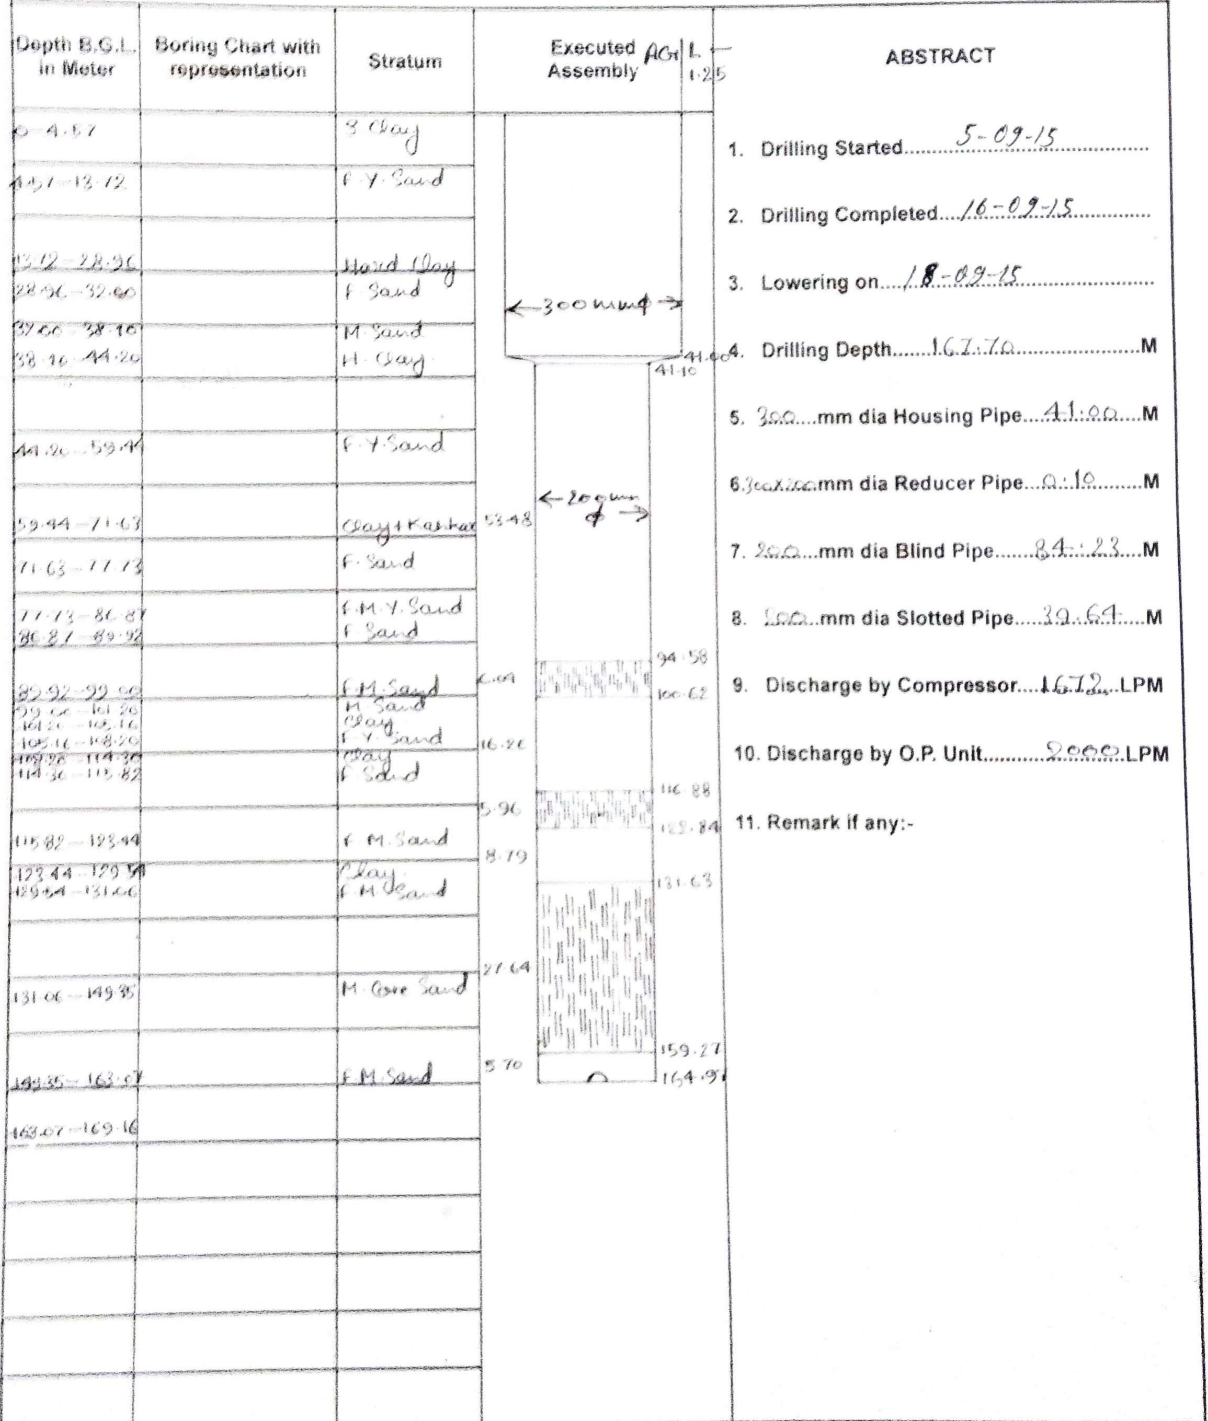 Depth B.G.L. in Meter
Boring Chart with representation
Stratum
Executed Assembly
AG/L 1.25
ABSTRACT
0-4.57 S Clay
4.57-13.72 F.Y.Sand
13.72-28.96 Hard Clay
28.96-32.00 F Sand
32.00-38.10 M.Sand
38.10-44.20 H.Clay
44.20-59.44 F.Y.Sand
59.44-71.63 Clay+Kankar
71.63-77.73 F.Sand
77.73-86.87 F.M.Y.Sand
86.87-89.92 F Sand
89.92-99.06 F.M.Sand
99.06-101.20 M Sand
101.20-105.16 Clay
105.16-108.20 F.Y.Sand
108.20-114.30 Clay
114.30-115.82 F Sand
115.82-123.44 F.M.Sand
123.44-129.54 Clay
129.54-131.06 F.M.Sand
131.06-149.35 M.Core Sand
149.35-163.07 F.M.Sand
163.07-169.16
←300mmϕ→
41.00
41.10
←200mm ϕ→
53.48
94.58
6.04
100.62
16.26
116.88
5.96
122.84
8.79
131.63
27.64
159.27
5.70
164.97
1. Drilling Started 5-09-15
2. Drilling Completed 16-09-15
3. Lowering on 18-09-15
4. Drilling Depth 167.70 M
5. 300 mm dia Housing Pipe 41.00 M
6. 300x200 mm dia Reducer Pipe 0.10 M
7. 200 mm dia Blind Pipe 84.23 M
8. 200 mm dia Slotted Pipe 39.64 M
9. Discharge by Compressor 1672 LPM
10. Discharge by O.P. Unit 2000 LPM
11. Remark if any:-